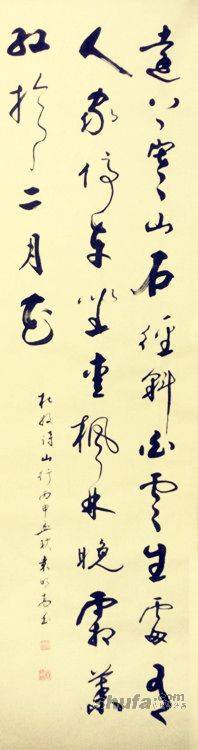 遠上寒山石徑斜白雲生處有
人家停車坐愛楓林晚霜葉
紅於二月花
杜牧詩山行丙申